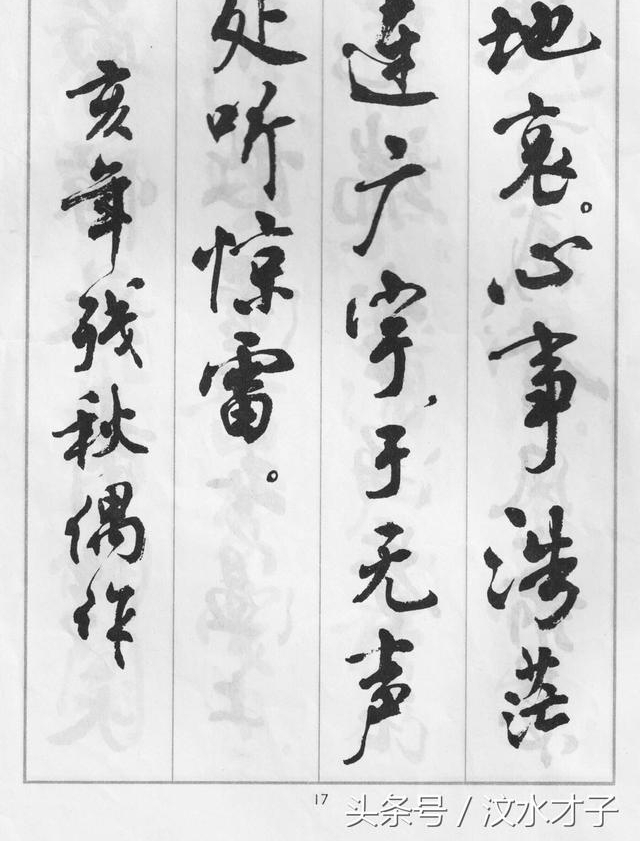 地哀。心事浩茫
连广宇，于无声
处听惊雷。
亥年残秋偶作
17
头条号 / 汶水才子